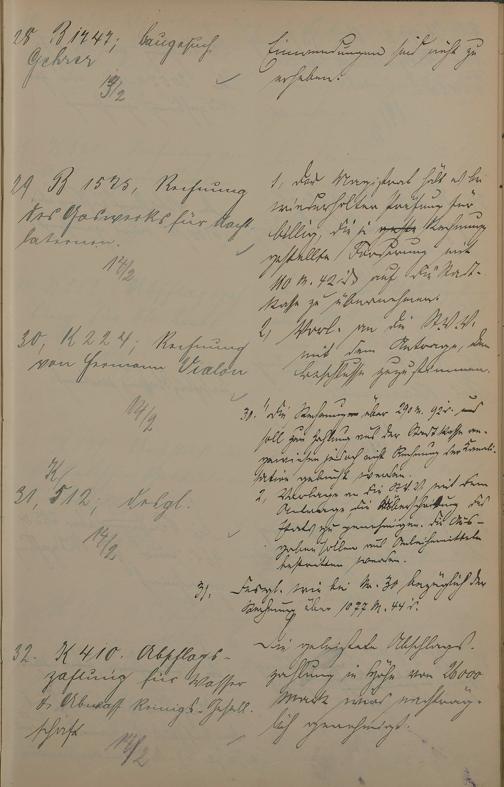 28 B 1747; Baugesuch
Gehrer
14/2
Einwendungen sind nicht zu
erheben.
29 B 1525, Rechnung
des Gaswerks für Nacht-
laternen.
14/2
1, Der Magistrat hält es bei
wiederholter Prüfung für
billig, die i. Rechnung
gestellte Forderung mit
110 M. 42 auf die Stadt-
kasse zu übernehmen.
2, Vorl. an die St.V.V.
mit dem Antrage, dem
Beschlusse zuzustimmen.
30, K 224; Rechnung
von Hermann Vialon
14/2
30. 1 Die Rechnung über 290 M. 92 und
soll zur Zahlung aus der Stadtkasse an-
gewiesen jedoch auf Rechnung der Kanali-
sation gebucht werden.
2, Vorlage an die St.V.V. mit dem
Antrage die Überschreitung des
Etats zu genehmigen. Die Aus-
gaben sollen aus Anleihemitteln
bestritten werden.
31, K 512, Desgl.
14/2
31. Desgl. wie bei Nr. 30 bezüglich der
Rechnung über 1077 M. 44
32. K 410. Abschlags-
zahlung für Wasser
& Abwasser Reinigs.-Gesell-
schaft
14/2
Die geleistete Abschlags-
zahlung in Höhe von 26000
Mark wird nachträg-
lich genehmigt.